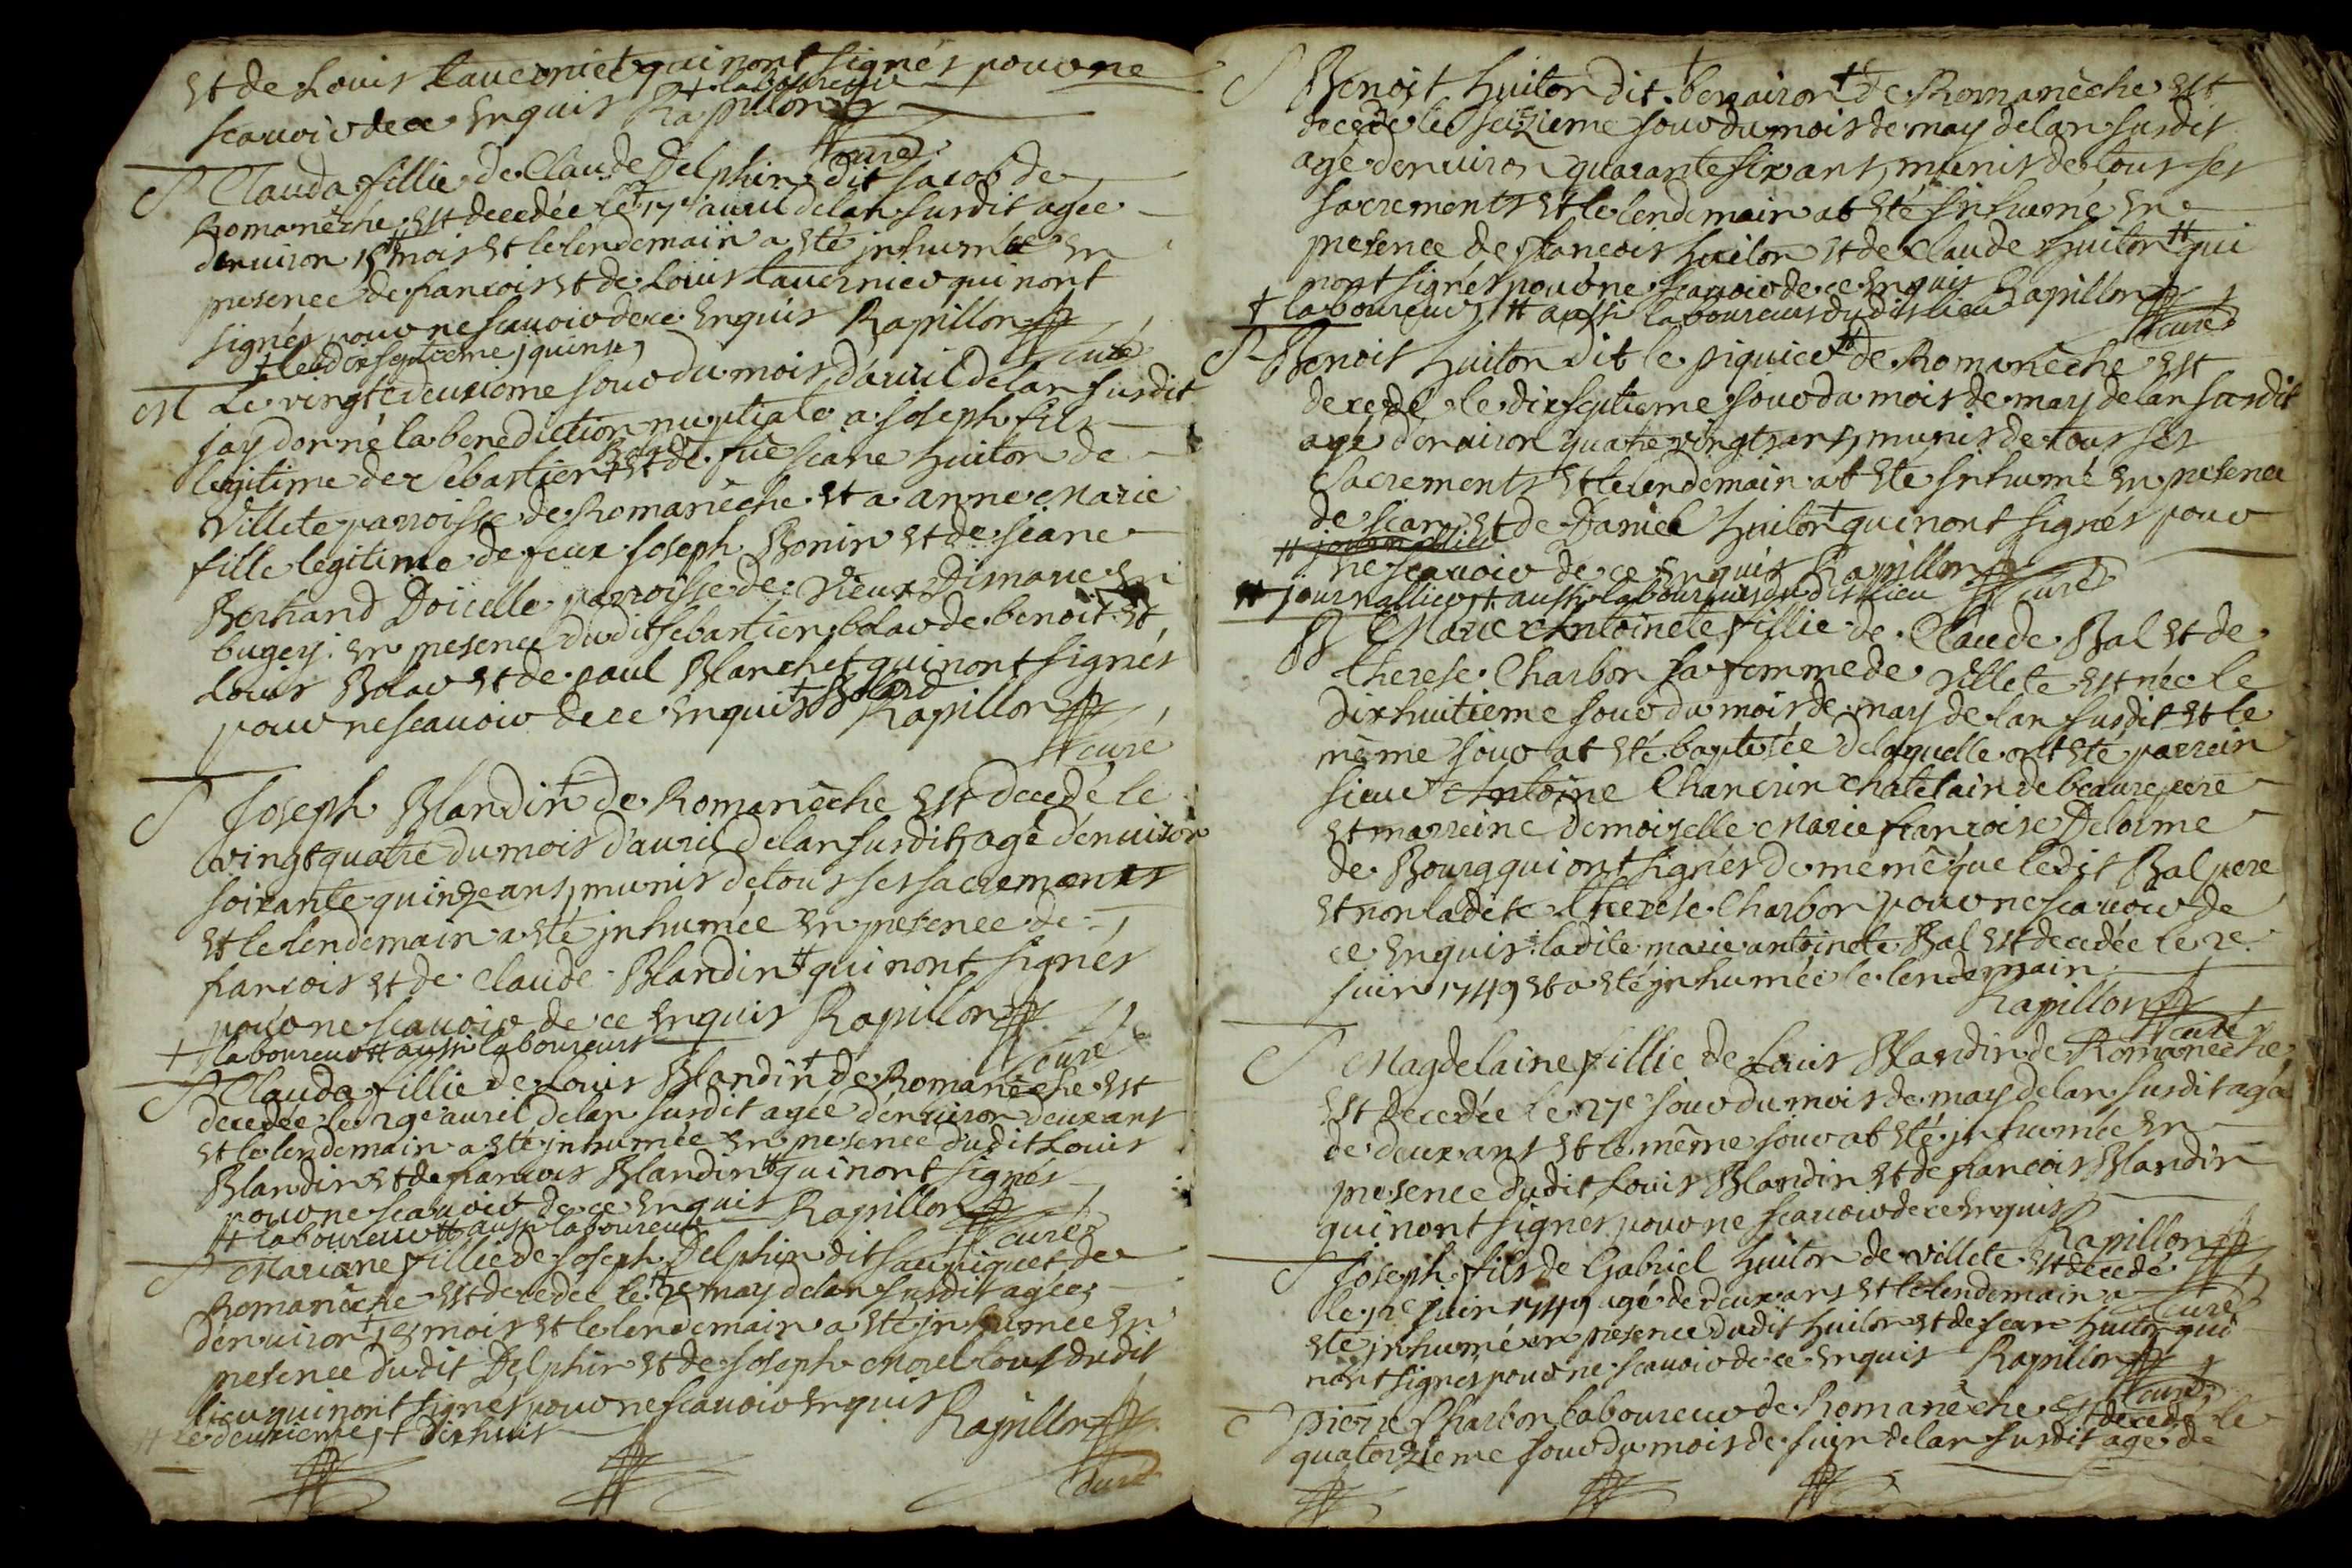 et de Louis tavernier qui nont signés pour ne
scavoir de ce enquis Rapillon
+ laboureur
curé
S Clauda fillie de Claude Delphin dit Jacob de
Romanêche est decedée le + 17e avril delan susdit agée
denviron 15 # mois et le lendemain a eté inhumée en
presence de francois et de Louis tavernier qui nont
signés pour ne scavoir de ce enquis Rapillon
+ le dix septieme # quinse curé
M Le vingt deuxiome jour du mois davril delan susdit
jay donné la benediction nuptiale a Joseph fils
legitime de sebastien + et de füe jeane huiton de
Villete parroisse de Romanêche et a anne Marie
fille legitime de feux Joseph Bonin et de jeane
Bertrand Doicelle parroisse de Vieux Dimave en
bugey. en presence dudit sebastien bolar de benoit et
Louis Bolar et de paul Blanchet qui nont signés
pour ne scavoir de ce enquis + Bolard Rapillon
curé
S Joseph Blandin + de Romanêche est decedé le
vingt quatre du mois d'avril delan susdit agé d'environ
soixante quinze ans munis de tous ses sacrements
et le lendemain a eté inhumée en presence de
francois et de Claude Blandin # qui nont signés
pour ne scavoir de ce enquis Rapillon
+ laboureur # aussi laboureurs curé
S Clauda fillie de Louis Blandin + de Romanêche est
decedée le 29e avril delan susdit agée denviron deux ans
et le lendemain a eté inhumée en presence dudit Louis
Blandin et de francois Blandin # qui nont signés
pour ne scavoir de ce enquis Rapillon
+ laboureur # aussi laboureur curé
S Mariane fillie de Joseph Delphin dit saupiquet de
Romanêche est decedée le # 2e may delan susdit agée
denviron + 18 mois et le lendemain a eté inhumée en
presence dudit Delphin et de Joseph morel tous dudit
lieu qui nont signés pour ne scavoir enquis Rapillon
# le deuxieme + dix huit
curé
S Benoit huiton dit benairon + de Romanêche est
decedé le seizieme jour du mois de may delan susdit
agé denviron quarante six ans, munis de tous ses
sacrements et le lendemain at eté inhumé en
presence de francois huiton et de Claude huiton # qui
nont signés pour ne scavoir de ce enquis Rapillon
+ laboureur # aussi laboureurs dudit lieu curé
S Benoit huiton dit le piquier # de Romanêche est
decedé le dix septieme jour du mois de may delan susdit
agé d'environ quatre vingts ans, munis de tous ses
sacrements et le lendemain at eté inhumé en presence
de jean et de Daniel huiton + qui nont signés pour
ne scavoir de ce enquis Rapillon
# journallier + aussi laboureurs dudit lieu curé
B Marie Antoinete fillie de Claude Bal et de
therese Charbon sa femme de villete est née le
dix huitieme jour du mois de may delan susdit et le
même jour at eté baptisée de laquelle ont eté parrein
sieur Antoine Chancrin chatelain de beaurepere
et marreine demoiselle Marie francoise Delorme
de Bourg qui ont signés de meme que ledit Bal pere
et non ladite therese Charbon pour ne scavoir de
ce enquis. ladite marie antoinete Bal est decedée le 2e
juin 1749 et a eté inhumée le lendemain
Rapillon
curé
S Magdelaine fillie de Louis Blandin de Romanêche
est decedée le 27e jour du mois de may delan susdit agée
de deux ans et le même jour at eté inhumée en
presence dudit Louis Blandin et de francois Blandin
qui nont signés pour ne scavoir de ce enquis
Rapillon
curé
S Joseph fils de Gabriel huiton de villete est decedé
le juin 1749 agé de deux ans et le lendemain a
eté inhumé en presence dudit huiton et de jean huiton qui
nont signés pour ne scavoir de ce enquis Rapillon
curé
S pierre Charbon laboureur de Romanêche est decedé le
quatorzieme jour du mois de juin delan susdit agé de